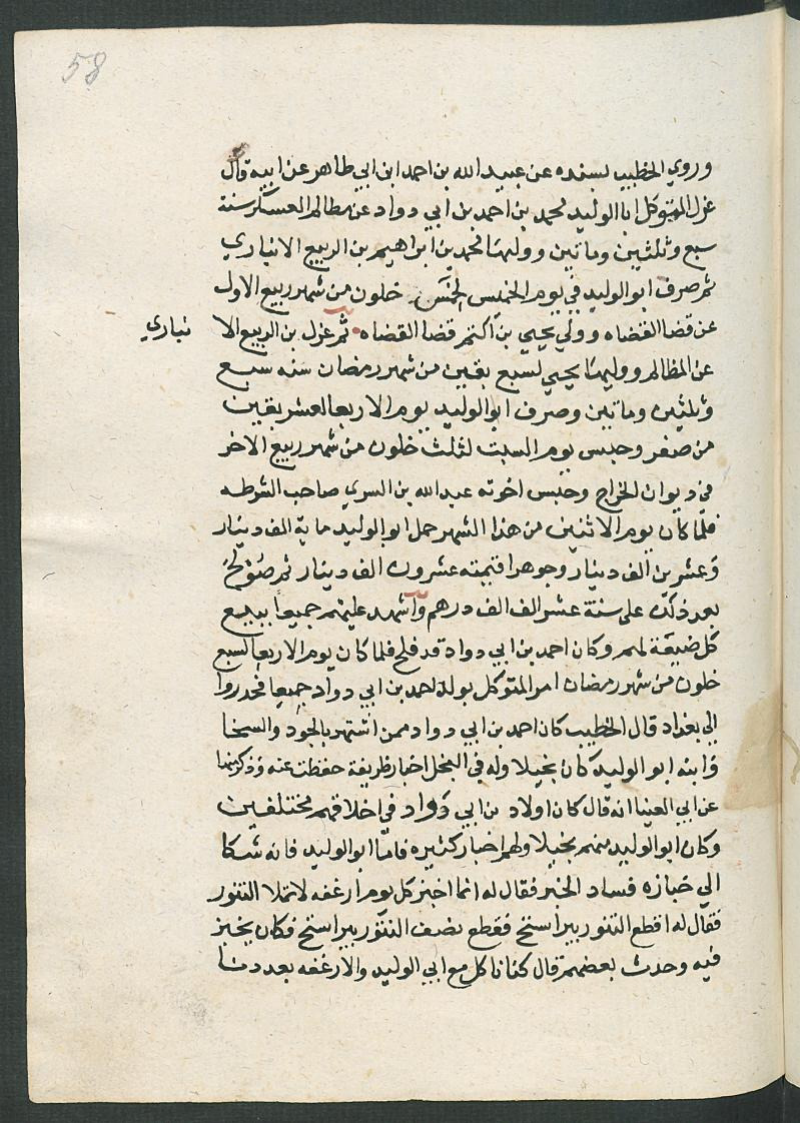 58
وروي الخطيب بسنده عن عبيد الله بن احمد ابن ابي طاهر عن ابيه قال
عزل المتوكل ابا الوليد محمد بن احمد بن ابي دواد عن مظالم العسكر سنة
سبع وثلثين وماتين وولها محمد بن ابراهيم بن الربيع الانباري
ثم صرف ابو الوليد في يوم الخميس لخمس خلون من شهر ربيع الاول
عن قضا القضاه وولي يحيي بن اكثم قضا القضاه ثم عزل بن الربيع الا
نباري
عن المظالم ووليها يحيي لسبع بقين من شهر رمضان سنه سبع
وثلثين وماتين وصرف ابو الوليد يوم الاربعا لعشر بقين
من صفر وحبس يوم السبت لثلث خلون من شهر ربيع الاخر
في ديوان الخراج وحبس اخوته عبد الله بن السري صاحب الشرطه
فلما كان يوم الاثنين من هذا الشهر حمل ابو الوليد ماية الف دينار
وعشرين الف دينار وجوهرا قيمته عشرون الف دينار ثم صولح
بعد ذلك على ستة عشر الف الف درهم واشهد عليهم جميعا ببيع
كل ضيعة لهم وكان احمد بن ابي دواد قد فلج فلما كان يوم الاربعا لسبع
خلون من شهر رمضان امر المتوكل بولد احمد بن ابي دواد جميعا فحدروا
الي بغداد قال الخطيب كان احمد بن ابي دواد ممن اشتهر بالجود والسخا
وابنه ابو الوليد كان بخيلا وله في البخل اخبار ظريفة حفظت عنه وذكر منها
عن ابي العينا انه قال كان اولاد بن ابي دواد في اخلاقهم مختلفين
وكان ابو الوليد منهم بخيلا ولهم اخبار كثيره فاما ابو الوليد فانه شكا
الي خبازه فساد الخبز فقال له انما اخبز كل يوم ارغفه لا تملا التنور
فقال له اقطع التنور ببراستج فقطع نصف التنور ببراستج فكان يخبز
فيه وحدث بعضهم قال كنا ناكل مع ابي الوليد والارغفه بعددنا